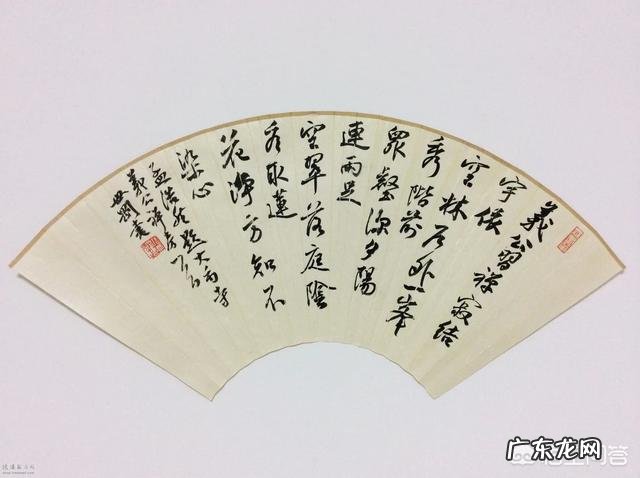 義公習禅寂結
宇依
空林户外一峯
秀階前
衆壑深夕陽
連雨足
空翠落庭陰
看取蓮
花淨方知不
染心
孟浩然題大禹寺
義公禅房
书
广东龙网